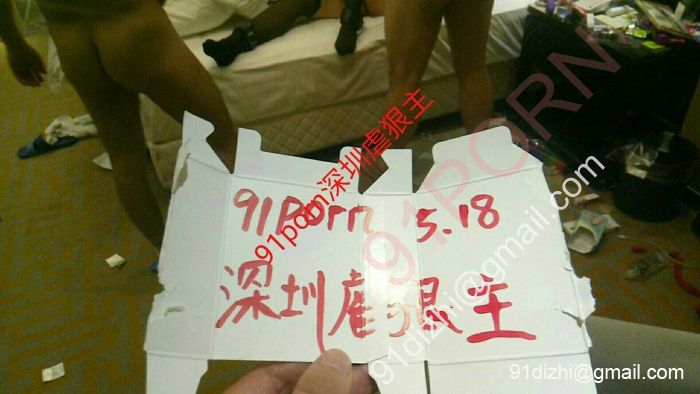 91porn深圳虐狠主
91PORN
91Porn 5.18
深圳虐狠主
91dizhi@gmail.com
91dizhi@gmail.com